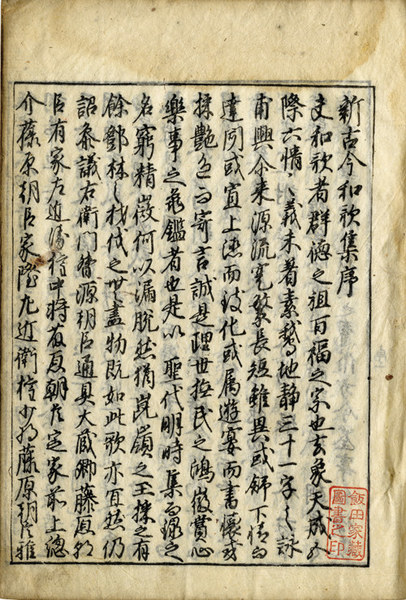 新古今和歌集序
夫和歌者群徳之祖百福之宗也玄象天成五
際六情之義未著素鵞地静三十一字之詠
甫興尓来源流寔繁長短雖異或舒下情而
達聞或宣上徳而致化或属遊宴而書懐或
採艶色而寄言誠是理世撫民之鴻徽賞心
楽事之亀鑑者也是以 聖代明時集而録之
各窮精微何以漏脱然猶崑嶺之玉採之有
餘鄧林之材伐之無盡物既如此歌亦宜然仍
詔参議右衛門督源朝臣通具大蔵卿藤原朝
臣有家左近衛権中将藤原朝臣定家前上総
介藤原朝臣家隆左近衛権少将藤原朝臣雅
飯田家蔵
圖書之印